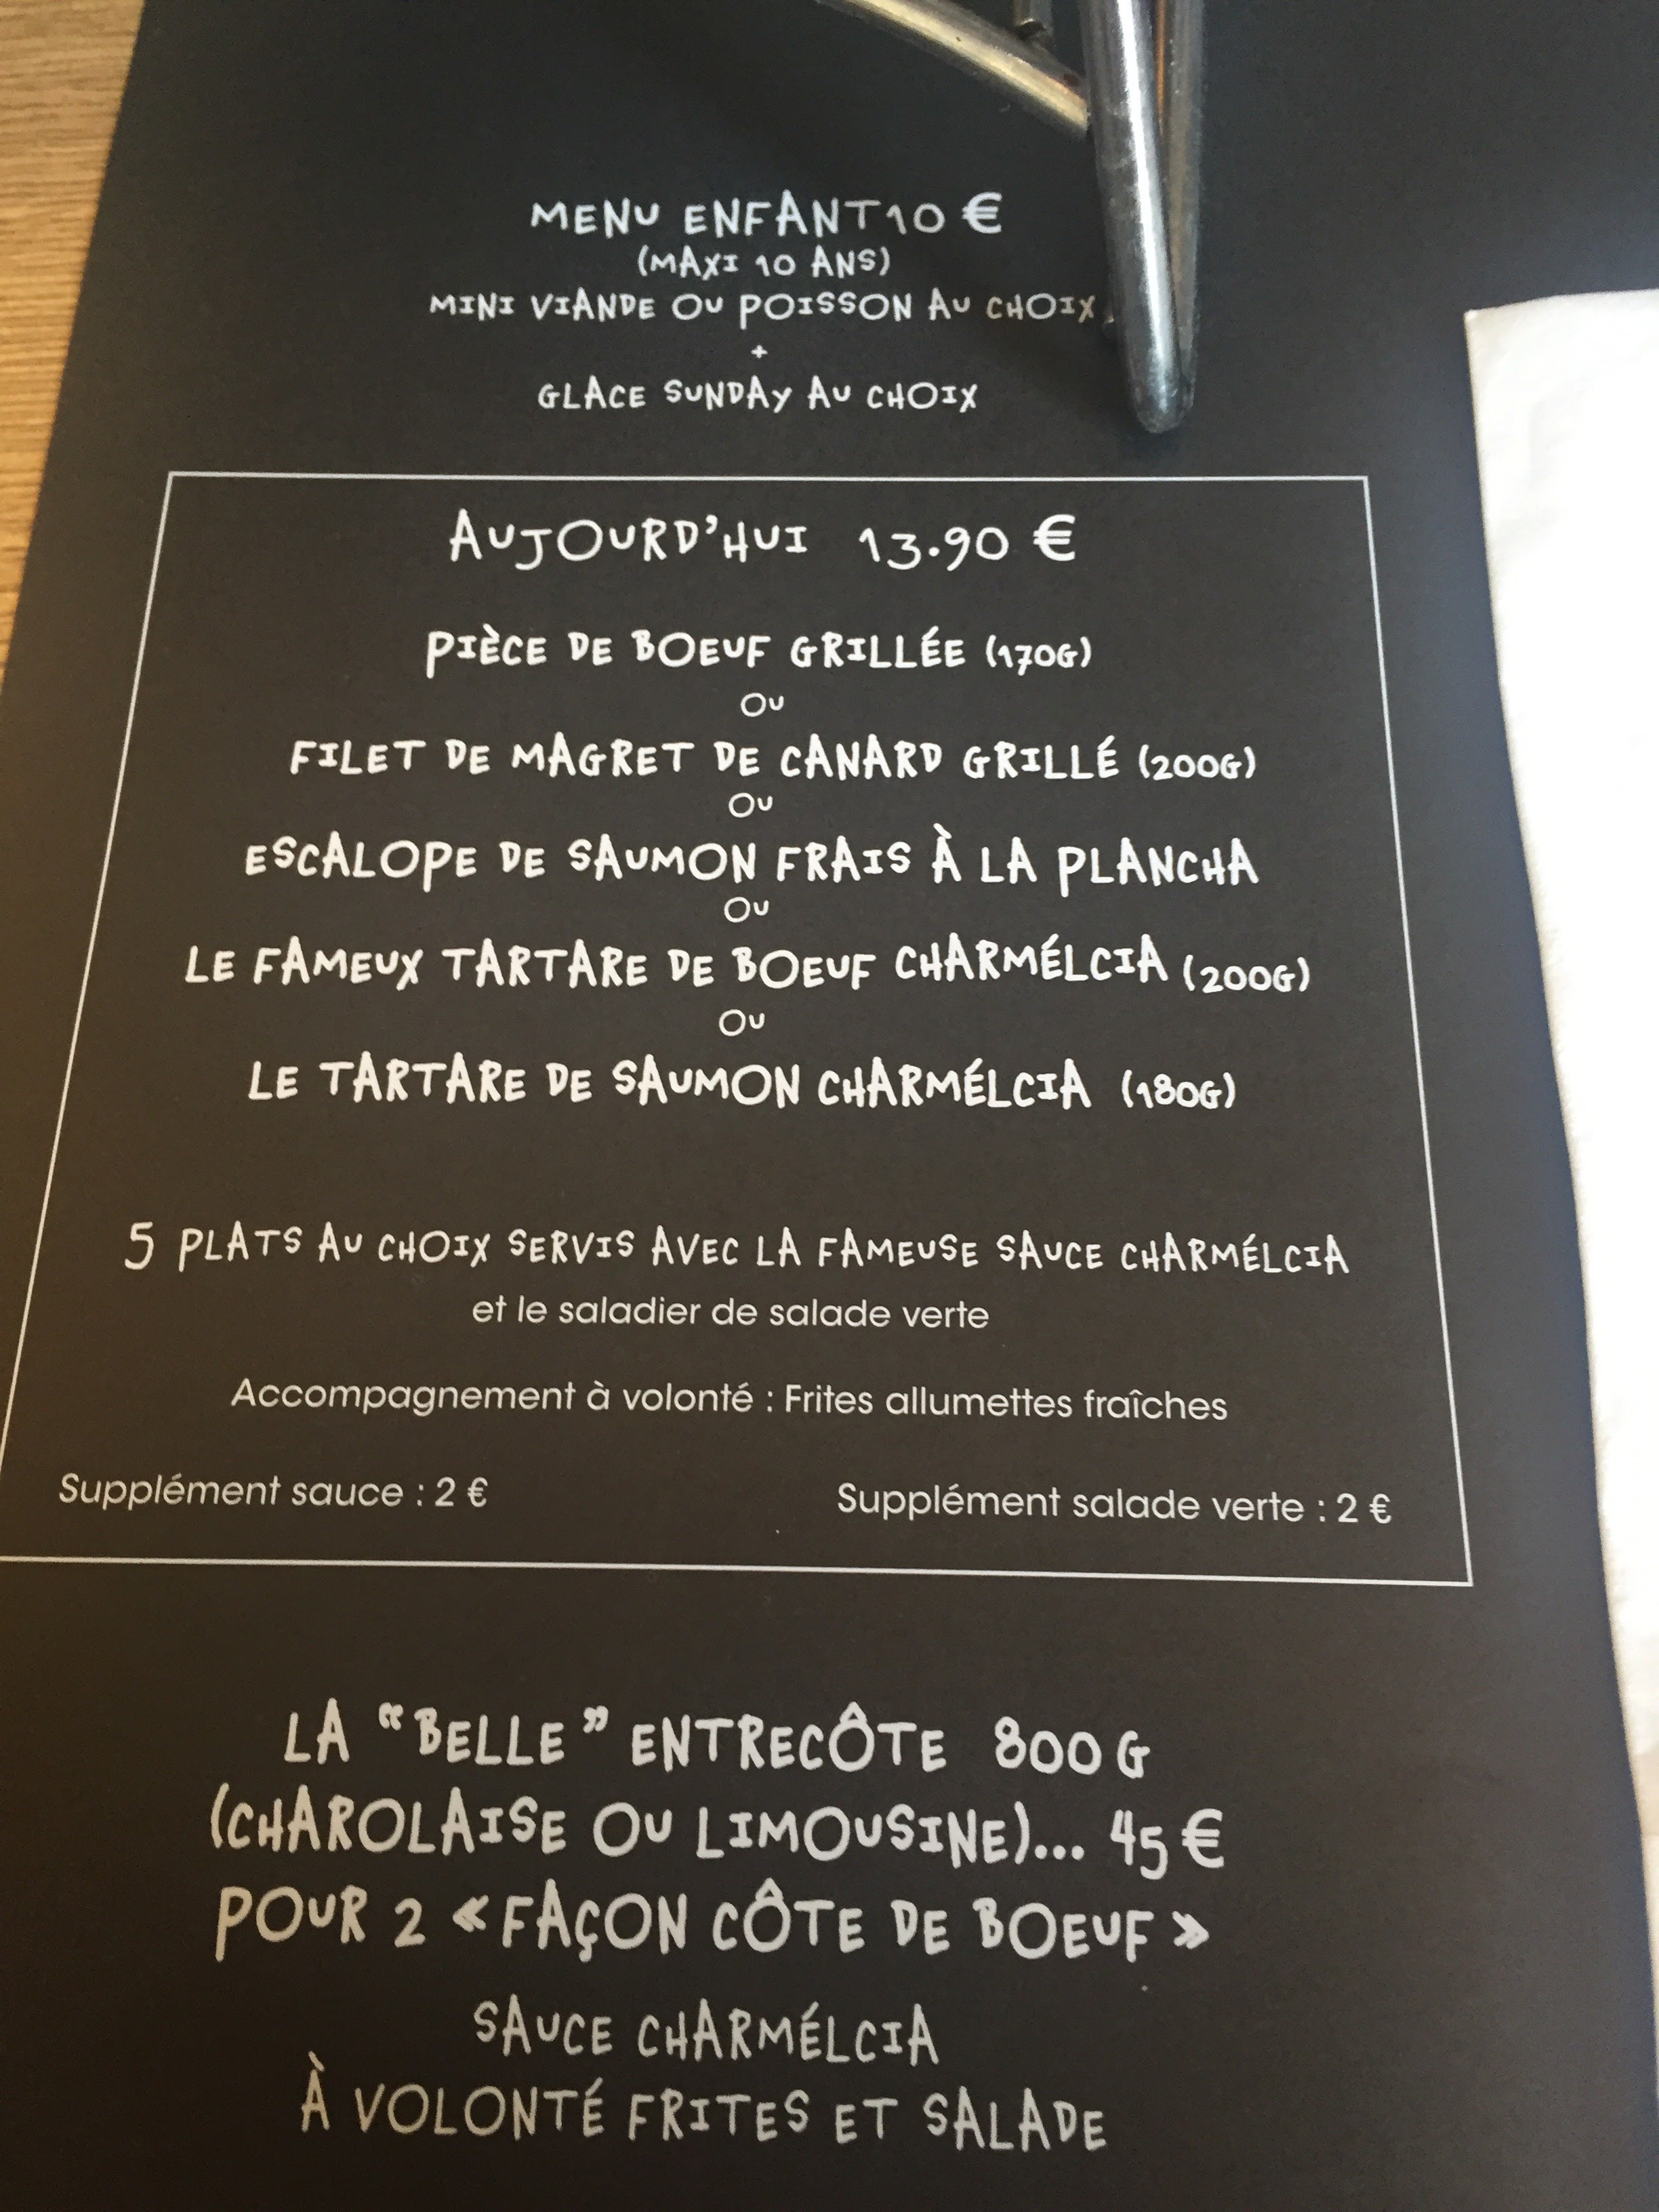 MENU ENFANT 10 €
(MAXI 10 ANS)
MINI VIANDE OU POISSON AU CHOIX
+
GLACE SUNDAY AU CHOIX
AUJOURD'HUI 13.90 €
PIÈCE DE BOEUF GRILLÉE (170G)
OU
FILET DE MAGRET DE CANARD GRILLÉ (200G)
OU
ESCALOPE DE SAUMON FRAIS À LA PLANCHA
OU
LE FAMEUX TARTARE DE BOEUF CHARMÉLCIA (200G)
OU
LE TARTARE DE SAUMON CHARMÉLCIA (180G)
5 PLATS AU CHOIX SERVIS AVEC LA FAMEUSE SAUCE CHARMÉLCIA
et le saladier de salade verte
Accompagnement à volonté : Frites allumettes fraîches
Supplément sauce : 2 € Supplément salade verte : 2 €
LA "BELLE" ENTRECÔTE 800 G
(CHAROLAISE OU LIMOUSINE)... 45 €
POUR 2 « FAÇON CÔTE DE BOEUF »
SAUCE CHARMÉLCIA
À VOLONTÉ FRITES ET SALADE